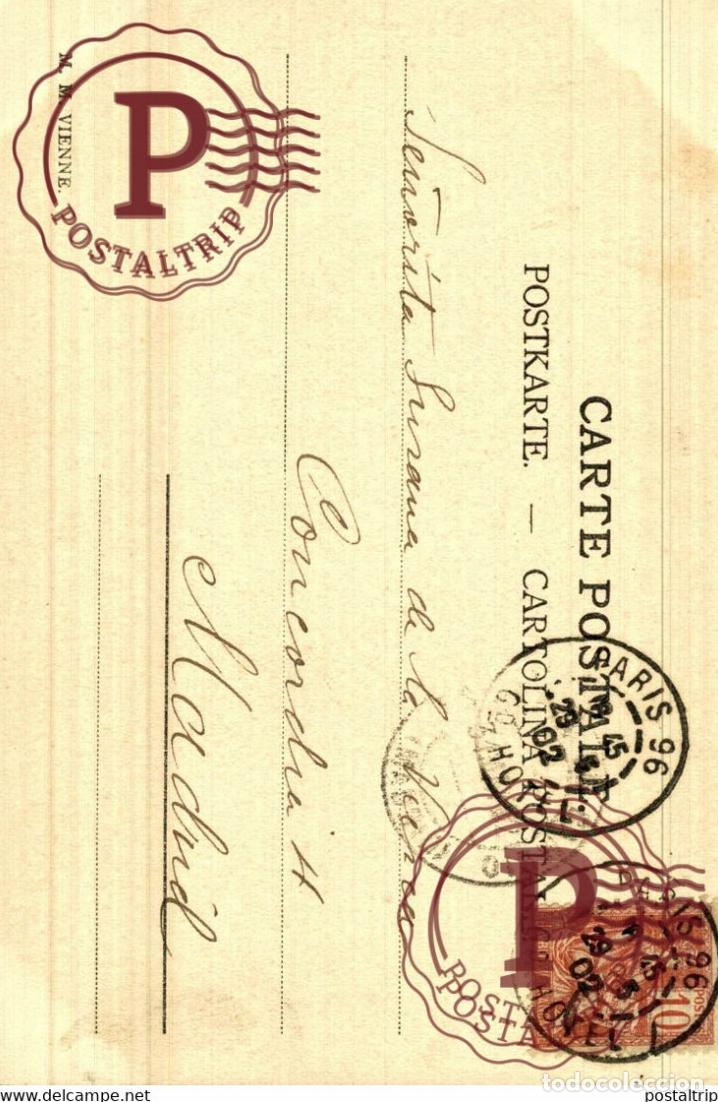 CARTE POSTALE.
POSTKARTE. — CARTOLINA POSTALE.
Señorita Susana de la
Concordia 4
Madrid
M. M. VIENNE.
PARIS 96
29
02
GD HOTEL
PARIS 96
15
29
02
HOTEL
10
P
POSTALTRIP
P
delcampe.net
todocoleccion
postaltrip